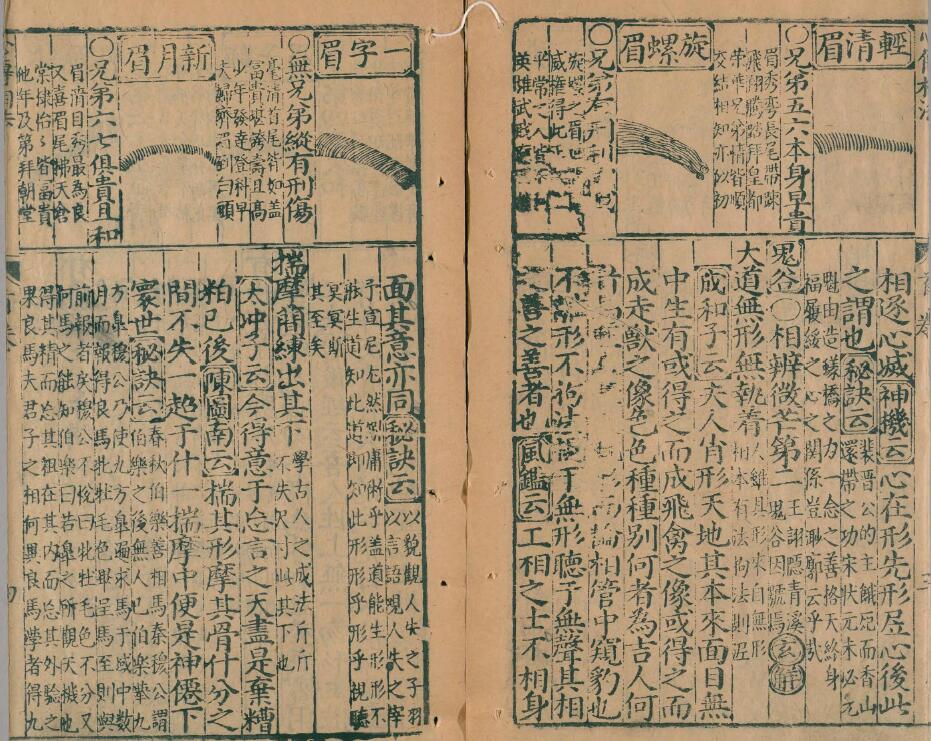 輕清眉
〇兄弟五六本身早貴
眉秀彎長尾帶疎
飛翔騰踏拜皇都
華萼兄弟情皆順
交結相知亦似初
旋螺眉
旋螺之眉世
威權得此
平常之人皆
英雄武職
相逐心滅神機云心在形先形居心後此
之謂也秘訣云裴晋公的主餓死而香山
還帶之功宋狀元未必元
魁由造蟻橋之力一念之善格天終身
福履綏之心之關係豈渺廓云乎哉
鬼谷〇相辨微芒第二王詡隱青溪
鬼谷因號焉
玄解
大道無形無執着人雖具形來自無形
相本有法拘法則泥
成和子云夫人肖形天地其本來面目無
中生有或得之而成飛禽之像或得之而
成走獸之像色色種種別何者為吉人何
形而論相管中窺豹也
形不拘法于無形聽于無聲其相
善之善者也風鑑云工相之士不相身
一字眉
〇無兄弟縱有刑傷
毫清首尾皆如盖
富貴堪誇壽且高
少年發達登科早
夫婦齊眉到白頭
新月眉
〇兄弟六七俱貴且和
眉清目秀最為良
又喜眉尾拂天倉
棠棣怡怡皆富貴
他年及第拜朝堂
面其意亦同秘訣云以貌觀人失之子羽
以言語觀人失之宰
予宣尼
盖道能生形形不
生道知此道即知此形形乎形乎視聽
冥冥斯
其至矣
揣摩簡練出其下學古人之成法斤斤
不失尺寸此其下也
太冲子云今得意于忘言之天盡是棄糟
粕已後陳圖南云揣其形摩其骨什分之
間不失一超于什一揣摩中便是神僊下
寰世秘訣云春秋伯樂善相馬秦穆公謂
伯樂之後無人也伯樂舉九
方臯穆公乃使九方臯遍求馬于域中數
月而報得良馬牝牡毛毛畢呈馬至則與
前報者戾穆公不悅曰牝牡毛色不分又
何馬之能知伯樂曰若臯之所觀天機也
得其精而忘其祖在其内而忘其外驗之
果良馬夫君子之相何異良馬學者得九